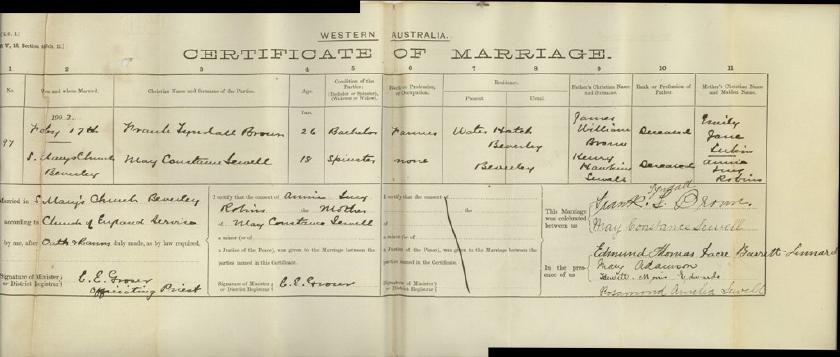 WESTERN AUSTRALIA.
CERTIFICATE OF MARRIAGE.
1 2 3 4 5 6 7 8 9 10 11
No. When and where Married. Christian Name and Surname of the Parties. Age. Condition of the Parties: (Bachelor or Spinster), (Widower or Widow). Rank or Profession, or Occupation. Residence. Present Usual. Father's Christian Name and Surname. Rank or Profession of Father. Mother's Christian Name and Maiden Name.
Years.
97 Feby 17th Frank Tyndall Brown 26 Bachelor Farmer Water Hatch Beverley James William Browne Deceased Emily Jane Lukin
S. Mary's Church Beverley May Constance Sewell 18 Spinster none Beverley Henry Hawkins Sewell Deceased Annie Lucy Robins
Married in S. Mary's Church Beverley
according to Church of England Service
by me, after Oath & Banns duly made, as by law required.
Signature of Minister or District Registrar
C. E. Groser
Officiating Priest
I certify that the consent of Annie Lucy
Robins the Mother
of May Constance Sewell
a minor (or of
a Justice of the Peace), was given to the Marriage between the
parties named in this Certificate.
Signature of Minister or District Registrar
C. E. Groser
I certify that the consent of
the
of
a minor (or of
a Justice of the Peace), was given to the Marriage between the
parties named in this Certificate.
Signature of Minister or District Registrar
This Marriage was celebrated between us
Tyndall
Frank T. Browne
May Constance Sewell
In the presence of us
Edmund Thomas Dacre Barrett-Lennard
Mary Adamson
Rosamond Amelia Sewell